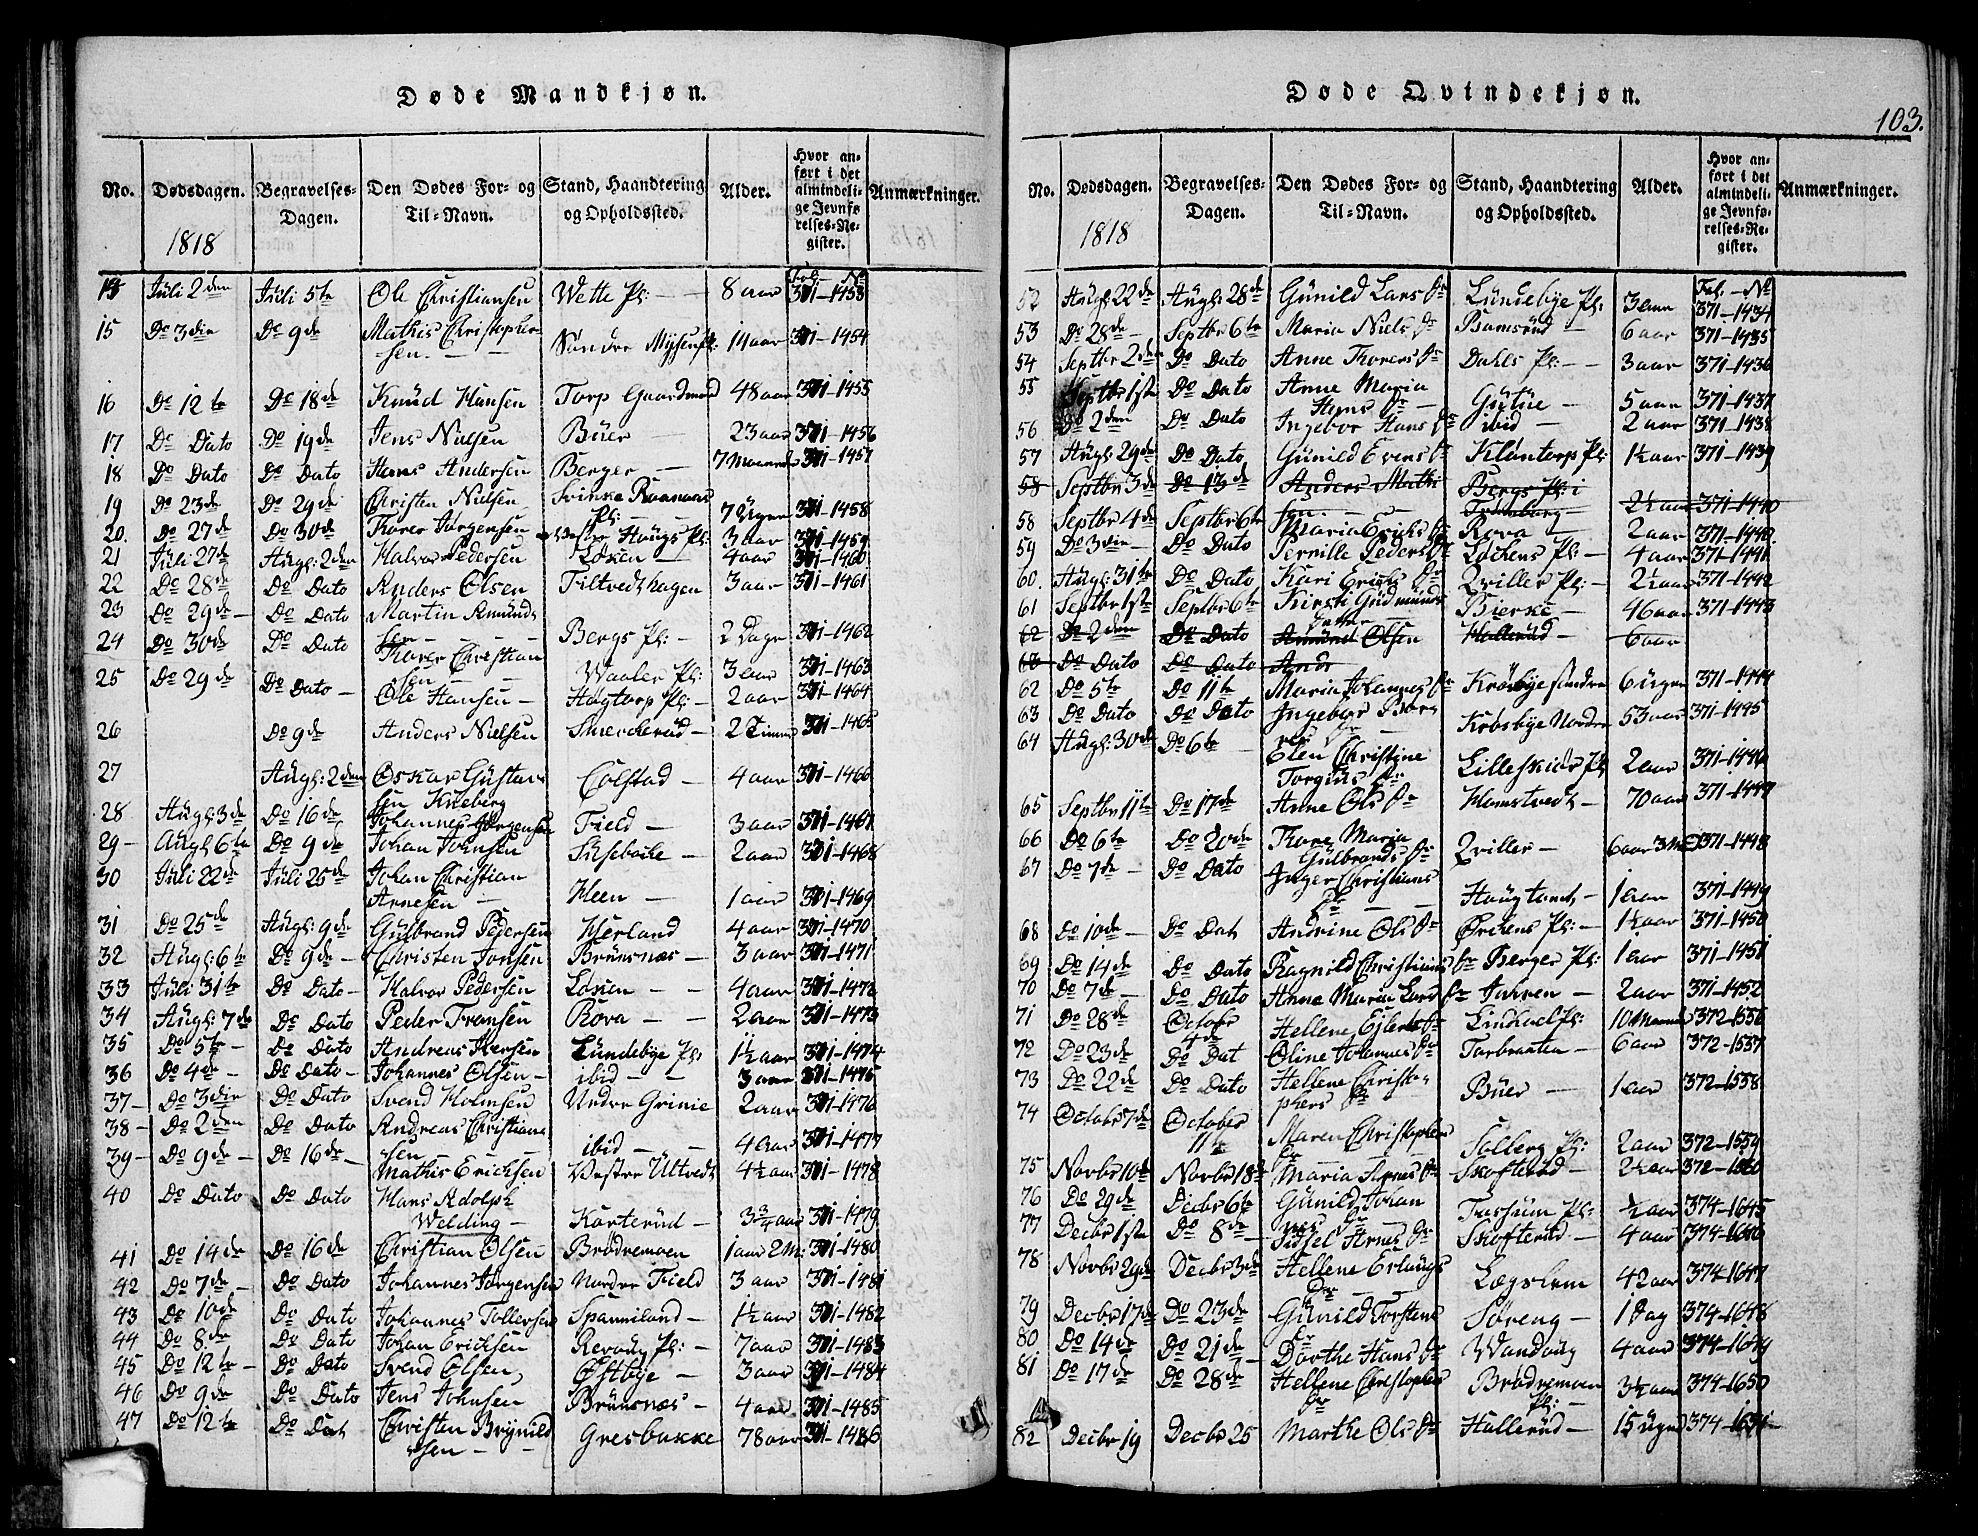 Døde Mandkjøn.
No. Dødsdagen. Begravelses-Dagen. Den Dødes For- og Til-Navn. Stand, Haandtering og Opholdssted. Alder. Hvor anført i det almindelige Jevnførelses-Register. Anmærkninger.
1818
Fol. No
Juli 2den Juli 5te Ole Christiansen Wette Pl: 8 aar 371-1453
15 Do 3die Do 9de Mathis Christophersen Søndre Mysen Pl: 14 aar 371-1454
16 Do 12te Do 18de Knud Hansen Torp Gaardmand 48 aar 371-1455
17 Do Dato Do 19de Jens Nielsen Büer 23 aar 371-1456
18 Do Dato Do Dato Hans Andersen Berger 7 Maaneder 371-1457
19 Do 23de Do 29de Christen Nielsen Pl: 7 Uger 371-1458
20. Do 27de Do 30de Thorer Jørgensen Haugs Pl: 3 aar 371-1459
21 Juli 27de Augs: 2den Halvor Pedersen Løken 4 aar 371-1460
22 Do 28de Do Dato Anders Olsen Tiltvedthagen 3 aar 371-1461
23 Do 29de Do Dato Martin Amundsen Bergs Pl: 2 Dage 371-1462
24 Do 30de Do Dato Thorer Christiansen Waaler Pl: 3 aar 371-1463
25 Do 29de Do Dato Ole Hansen Haptorp Pl: 2 aar 371-1464
26 Do 9de Anders Nielsen Smerkerud 2 Timer 371-1465
27 Augs: 2den Oskar Gustavsen Kneberg Colstad 4 aar 371-1466
28 Augs: 3de Do 16de Johannes Jørgensen Field 3 aar 371-1467
29 Augs 6te Do 9de Johan Johnsen Sikseboke 2 aar 371-1468
30 Juli 22de Juli 25de Johan Christian Arnesen Heen 1 aar 371-1469
31 Do 25de Augs: 9de Gulbrand Pedersen Herland 4 aar 371-1470
32 Augs: 6te Do 9de Christen Jonsen Brunsnæs 3 aar 371-1471
33 Juli 31te Do Dato Halvor Pedersen Løken 4 aar 371-1472
34 Augs: 7de Do Dato Peder Fransen Rova 2 aar 371-1473
35 Do 5te Do Dato Andreas Iversen Lundebye Pl: 1½ aar 371-1474
36 Do 4de Do Dato Johannes Olsen ibid 3 aar 371-1475
37 Do 3die Do Dato Svend Holmsen Undre Grinie 2 aar 371-1476
38 Do 2den Do Dato Andreas Christiansen ibid 4 aar 371-1477
39 Do 9de Do 16de Mathis Erichsen Vestre Ultvedt 4½ aar 371-1478
40 Do Dato Do Dato Hans Adolph Welding Karterud 3¾ aar 371-1479
41 Do 14de Do 16de Christian Olsen Brødremoen 1 aar 2 M: 371-1480
42 Do 7de Do Dato Johannes Jørgensen Nordre Field 3 aar 371-1481
43 Do 10de Do Dato Johannes Tollersen Spanniland 1½ aar 371-1482
44 Do 8de Do Dato Johan Erichsen Revoug Pl: 7 aar 371-1483
45 Do 12te Do Dato Svend Olsen Østbye 3 aar 371-1484
46 Do 9de Do Dato Jens Johnsen Brunsnæs 4 aar 371-1485
47 Do 12te Do Dat Christen Brynildsen Gresbakke 78 aar 371-1486
Døde Qvindekjøn.
103.
No. Dødsdagen. Begravelses-Dagen. Den Dødes For- og Til-Navn. Stand, Haandtering og Opholdssted. Alder. Hvor anført i det almindelige Jevnførelses-Register. Anmærkninger.
1818
Fol. No
52 Augs: 22de Augs: 28de Gunild Lars Dr Lundebye Pl: 3 aar 371-1434
53 Do 28de Septbr 6te Maria Niels Dr Ramsrud 6 aar 371-1435
54 Septbr 2den Do Dato Anne Thorers Dr Dahls Pl: 3 aar 371-1436
55 Septbr 1ste Do Dato Anne Maria Hans Dr Gutue 5 aar 371-1437
56 Do 2den Do Dato Ingebor Hans Dr ibid 2 aar 371-1438
57 Augs: 29de Do Dato Gunild Evens Dr Kløntorp Pl: 1½ aar 371-1439
58 Septbr 3de Do 13de Anders Mathisen Bergs Pl: i 2½ aar 371-1440
58 Septbr 4de Septbr 6te Maria Erichs Dr Rova 2 aar 371-1440
59 Do 3die Do Dato Pernille Peders Dr Løchens Pl: 4 aar 371-1441
60. Augs: 31te Do Dato Kari Erichs Dr Qviller Pl: 2½ aar 371-1442
61 Septbr 1ste Septbr 6te Kirsti Gudmunds Datter Bierke 46 aar 371-1443
62 Do 2den Do Dato Amund Olsen Hallerud 6 aar
63 Do Dato Do Dato Andr
62 Do 5te Do 11te Maria Johannes Dr Krosbye søndre 6 uger 371-1444
63 Do Dato Do Dato Ingebor Borgers Dr Krosbye Nordre 53 aar 371-1445
64 Augs: 30de Do 6te Elen Christine Torgius Dr Lilleskids Pl 2 aar 371-1446
65 Septbr 11te Do 17de Anne Ols Dr Homstvedt 70 aar 371-1447
66 Do 6te Do 20de Thore Maria Gulbrands Dr Qviller 6 aar 3 M 371-1448
67 Do 7de Do Dato Inger Christians Dr Haugland 1 aar 371-1449
68 Do 10de Do Dat Andrine Ols Dr Ørchens Pl: 1½ aar 371-1450
69 Do 14de Do Dato Ragnild Christians Dr Berger Pl: 1 aar 371-1451
70 Do 7de Do Dato Anne Maria Lars Dr Jahren 2 aar 371-1452
71 Do 28de Octobr 4de Hellene Ejlerts Dr Lindhol Pl: 10 Maaneder 372-1556
72 Do 23de Do Dat Oline Johannes Dr Tarbranten 6 aar 372-1557
73 Do 22de Do Dato Hellene Christophers Dr Büer 1 aar 372-1558
74 Octobr 7de October 11te Maren Christophers Dr Solberg Pl: 2 aar 372-1559
75 Novbr 10de Novbr 18de Maria Arnes Dr Skofterud 2½ aar 372-1560
76 Do 29de Decbr 6te Gunild Johannes Dr Tussum Pl: ½ aar 374-1645
77 Decbr 1ste Do 8de Sidsel Arnes Dr Skofterud 4 aar 374-1646
78 Novbr 29de Decbr 3de Hellene Erlings Dr Løgslem 42 aar 374-1647
79 Decbr 17de Do 23de Gunild Torstens Dr Søreng 1 Dag 374-1648
80 Do 14de Do 21de Dorthe Hans Dr Wandoug 4 aar 374-1649
81 Do 17de Do 28de Hellene Christophers Dr Brødremoen Pl: 3½ aar 374-1650
82 Decbr 19 Decbr 25 Marthe Ols Dr Hallerud 15 Uger 374-1651